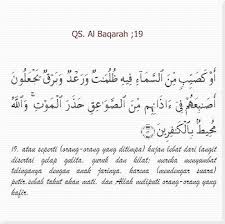 QS. Al Baqarah ;19
أَوْ كَصَيِّبٍ مِّنَ ٱلسَّمَآءِ فِيهِ ظُلُمَٰتٌ وَرَعْدٌ وَبَرْقٌ يَجْعَلُونَ
أَصَٰبِعَهُمْ فِىٓ ءَاذَانِهِم مِّنَ ٱلصَّوَٰعِقِ حَذَرَ ٱلْمَوْتِ ۚ وَٱللَّهُ
مُحِيطٌۢ بِٱلْكَٰفِرِينَ ﴿١٩﴾
19. atau seperti (orang-orang yang ditimpa) hujan lebat dari langit
disertai gelap gulita, guruh dan kilat; mereka menyumbat
telinganya dengan anak jarinya, karena (mendengar suara)
petir,sebab takut akan mati. dan Allah meliputi orang-orang yang
kafir.